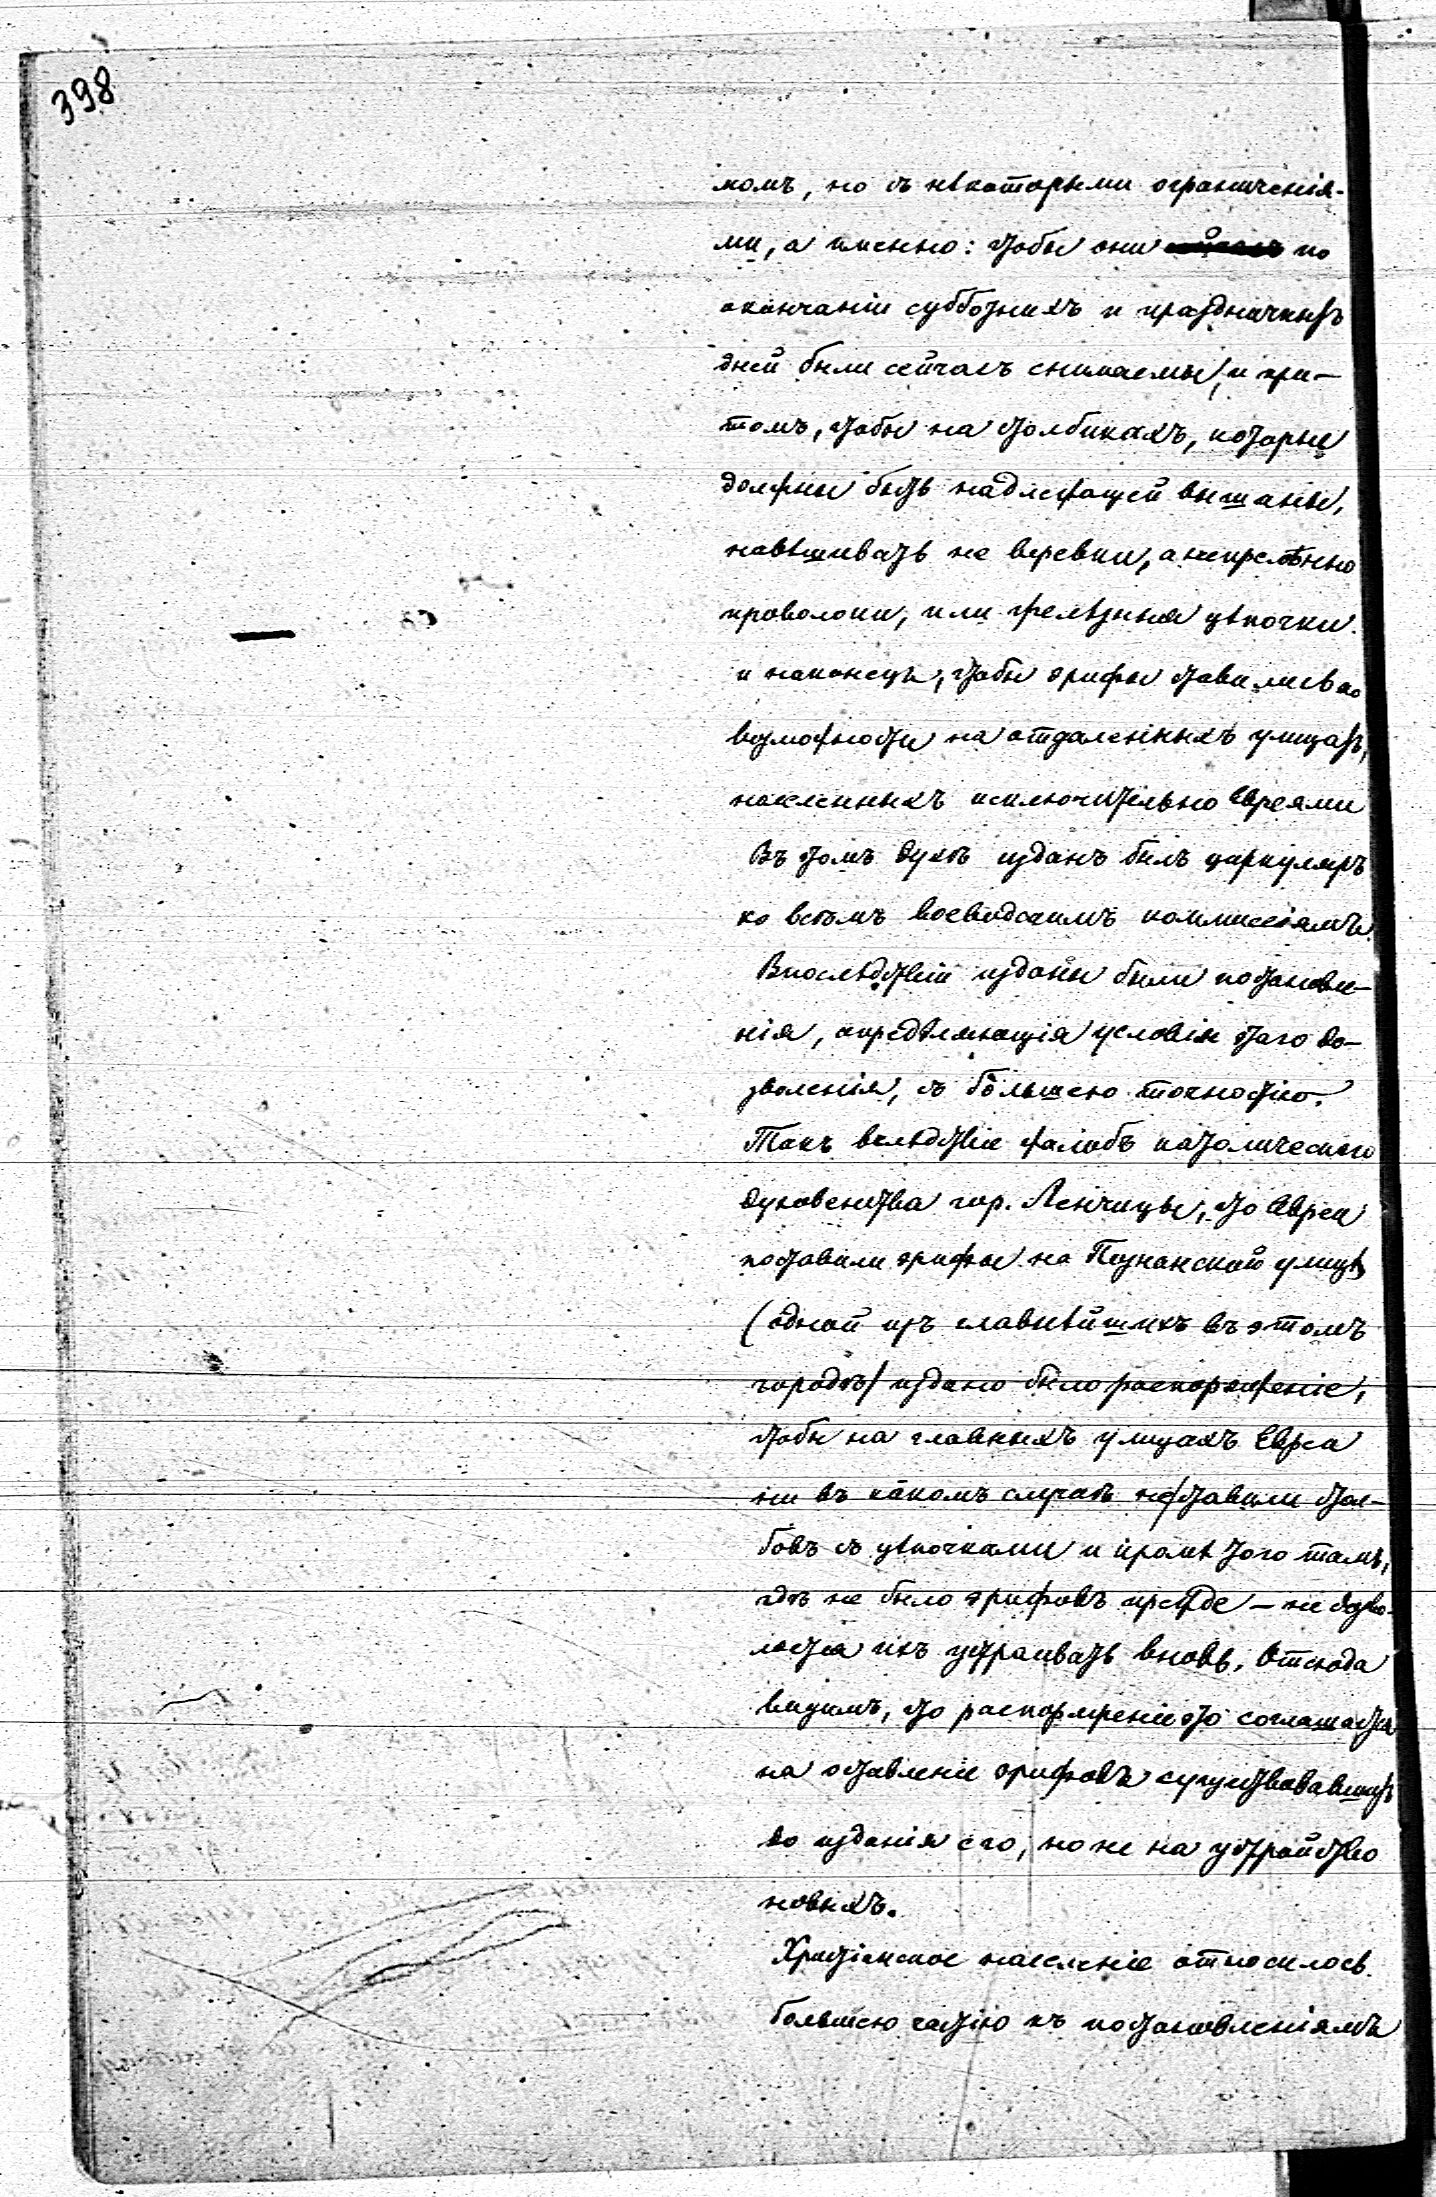 398
комъ, но съ нѣкоторыми ограниченія-
ми, а именно: чтобы они по
окончаніи субботнихъ и праздничныхъ
дней были сейчасъ снимаемы, и при-
томъ, чтобы на столбикахъ, которые
должны быть надлежащей вышины,
навѣшивать не веревки, а непремѣнно
проволоки, или желѣзныя цѣпочки
и наконецъ, чтобы эрифы ставились по
возможности на отдаленныхъ улицахъ,
населенныхъ исключительно Евреями
Въ этомъ духѣ изданъ былъ циркуляръ
ко всѣмъ воеводскимъ коммиссіямъ.
Впослѣдствіи изданы были постановле-
нія, опредѣляющія условія этого до-
зволенія, съ большею точностію.
Такъ вслѣдствіе жалобъ католическаго
духовенства гор. Ленчицы, что Евреи
поставили эрифы на Познанской улицѣ
(одной изъ главнѣйшихъ въ этомъ
городѣ) издано было распоряженіе,
чтобы на главныхъ улицахъ Евреи
ни въ какомъ случаѣ не ставили стол-
бовъ съ цѣпочками и кромѣ того тамъ,
гдѣ не было эрифовъ прежде — не дозво-
ляется ихъ устраивать вновь. Отсюда
видимъ, что распоряженіе это соглашается
на оставленіе эрифовъ существовавшихъ
до изданія его, но не на устройство
новыхъ.
Христіанское населеніе относилось
большею частію къ постановленіямъ